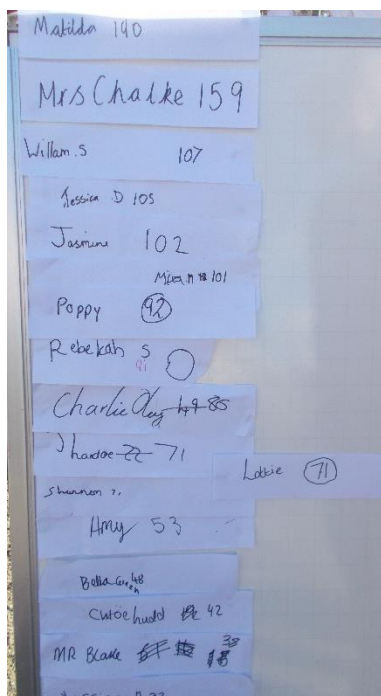 Matilda 190
Mrs Chalke 159
Willam.S 107
Jessica D 105
Jasmine 102
101
Poppy 92
Rebekah S
91
Charlie 85
71
Lottie 71
Shannon
Amy 53
Bella Green 48
Chloe hudd 42
MR Blake 38